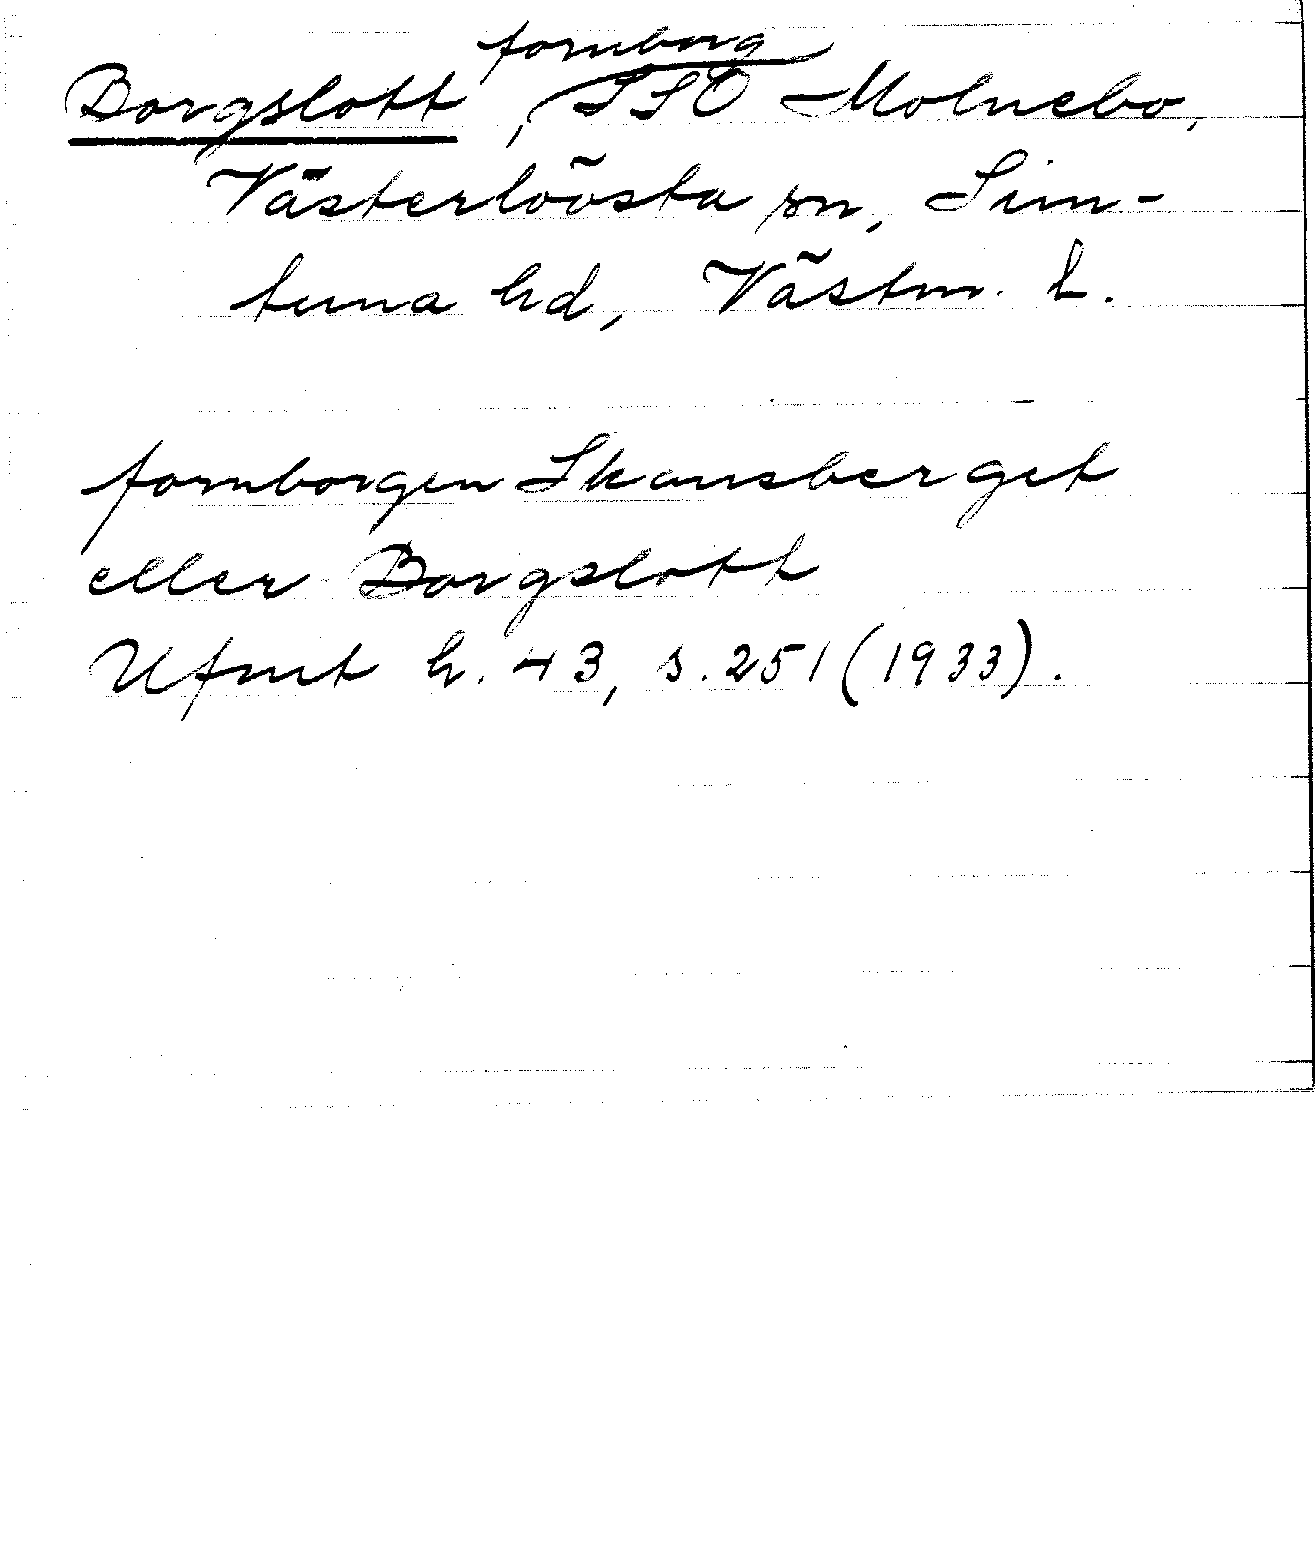 Borgslott, fornborg SSO Molnebo,
Västerlövsta sn, Sim-
tuna hd, Västm. l.
fornborgen Skansberget
eller Borgslott
Ufmt h. 43, s. 251 (1933).